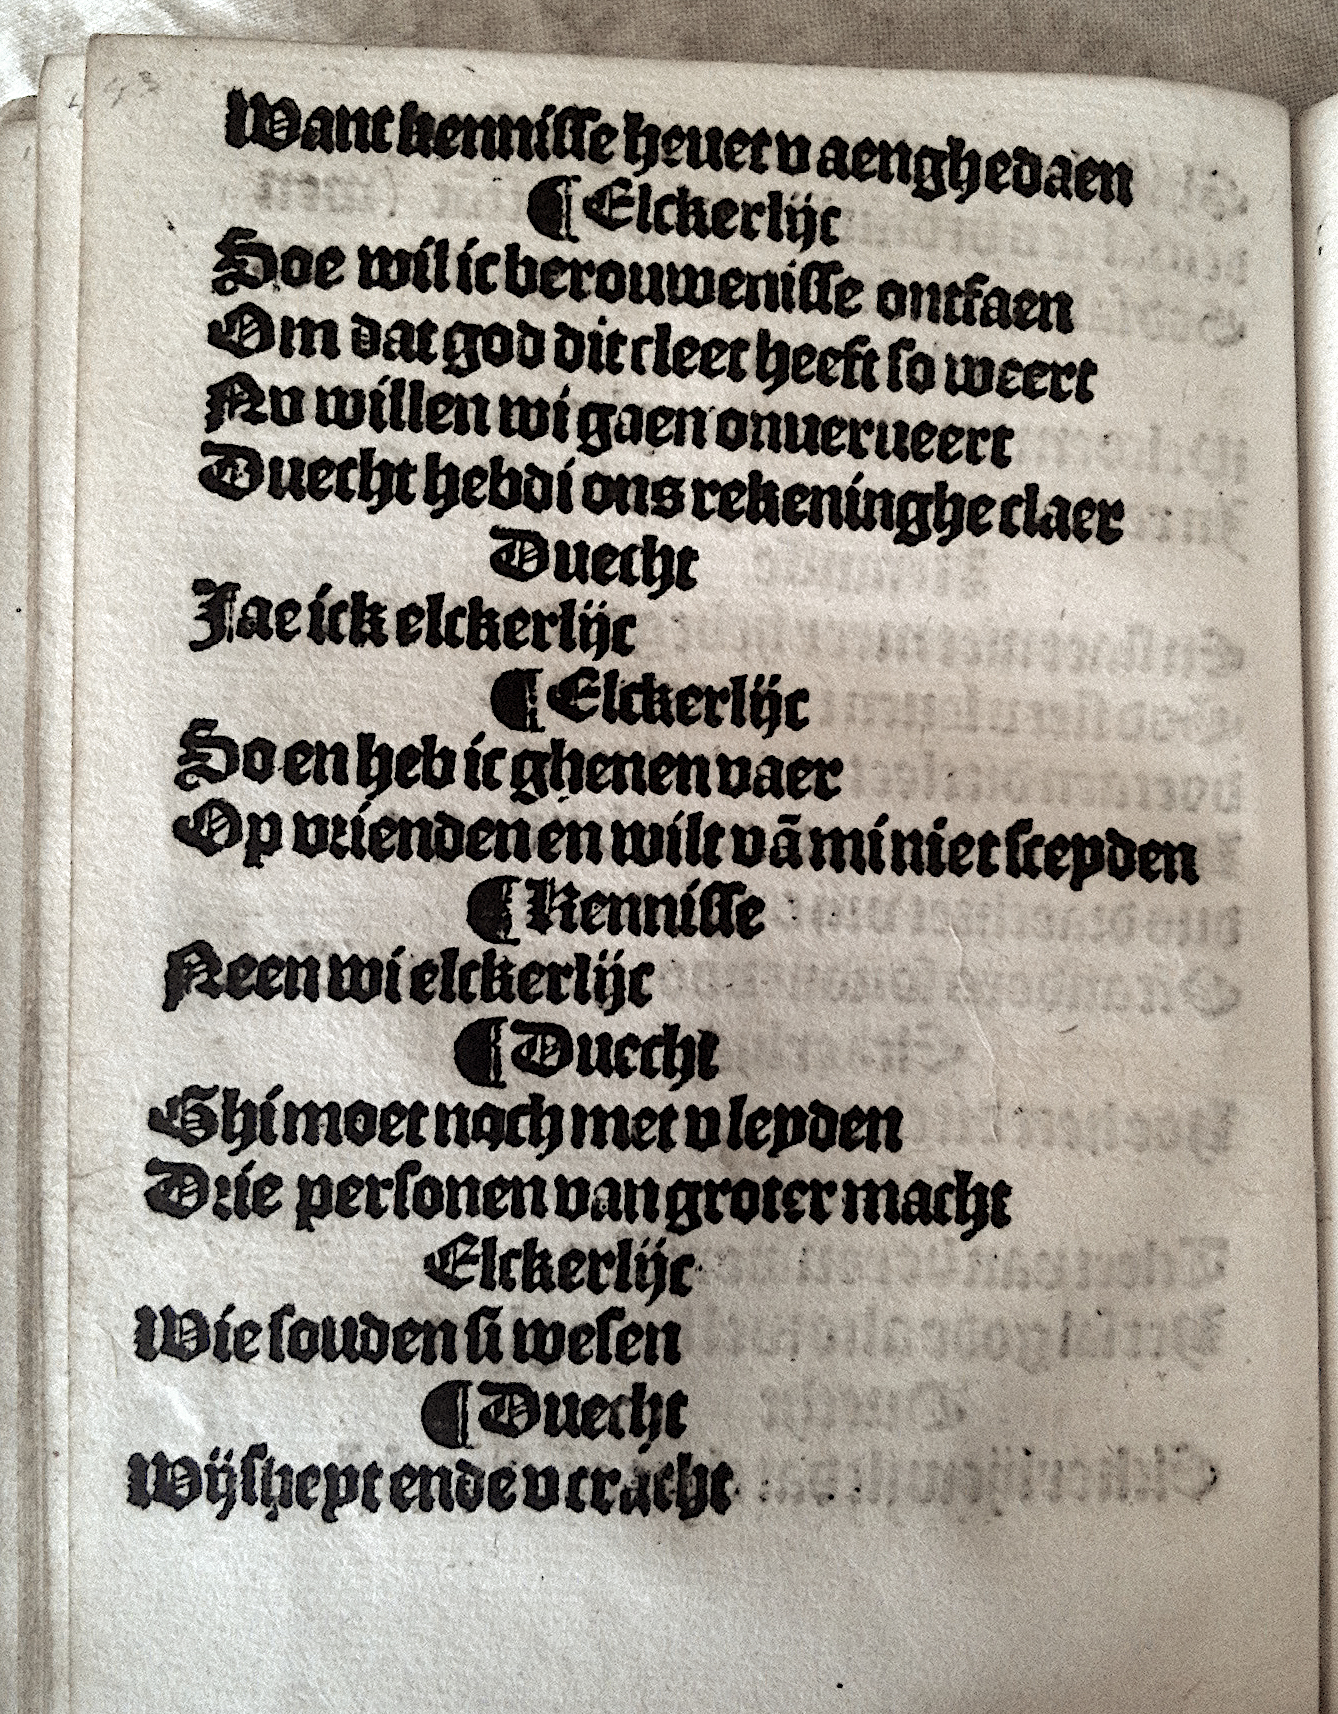 Want kennisse heuet v aenghedaen
¶ Elckerlijc
Soe wil ic berouwenisse ontfaen
Om dat god dit cleet heeft so weert
Nv willen wi gaen onuerueert
Duecht hebdi ons rekeninghe claer
Duecht
Jae ick elckerlijc
¶ Elckerlijc
So en heb ic ghenen vaer
Op vrienden en wilt vã mi niet sceyden
¶ Kennisse
Neen wi elckerlijc
¶ Duecht
Ghi moet noch met v leyden
Drie personen van groter macht
Elckerlijc
Wie souden si wesen
¶ Duecht
Wijsheyt ende v cracht